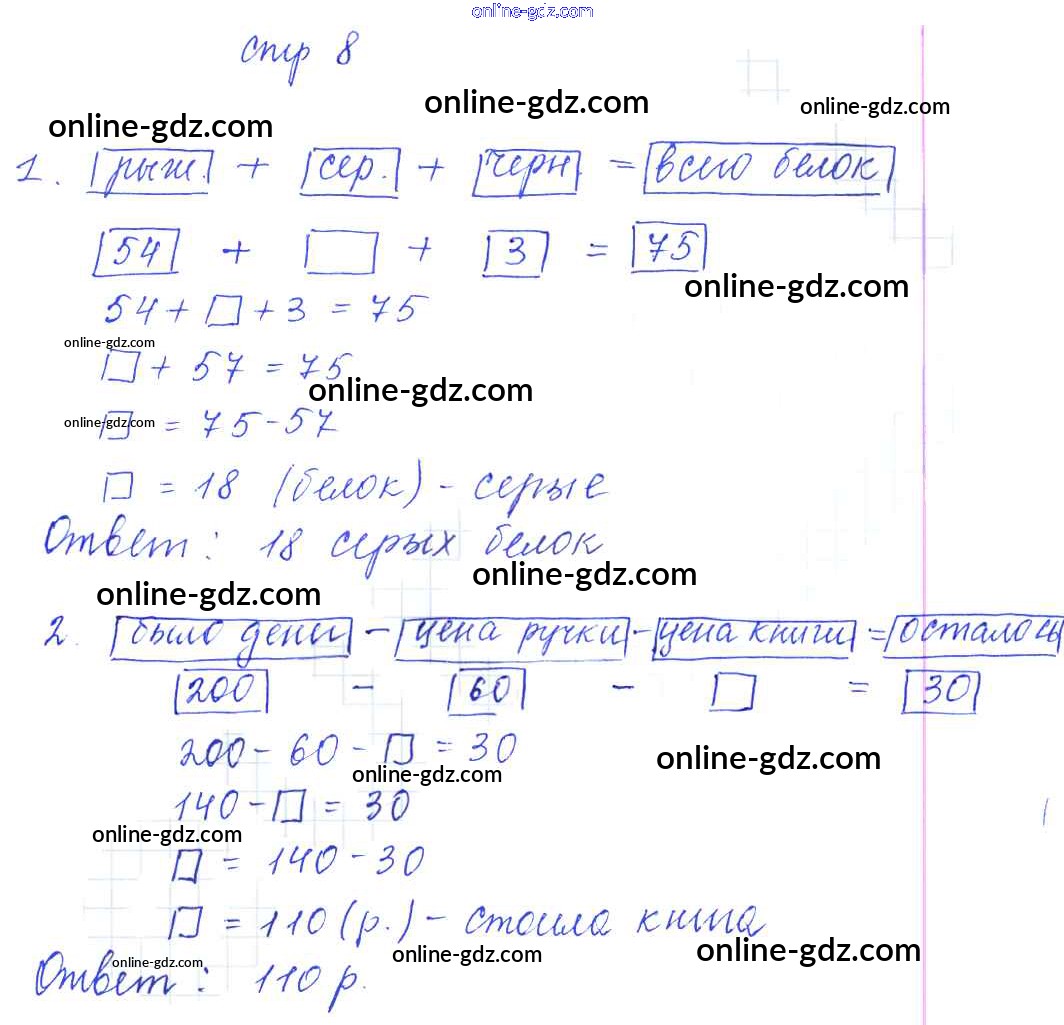 online-gdz.com
стр 8
online-gdz.com
online-gdz.com
online-gdz.com
1. рыж. + сер. + черн = всего белок
54 + □ + 3 = 75
online-gdz.com
54 + □ + 3 = 75
online-gdz.com
□ + 57 = 75
online-gdz.com
online-gdz.com
□ = 75 - 57
□ = 18 (белок) - серые
Ответ: 18 серых белок
online-gdz.com
online-gdz.com
2. было денег - цена ручки - цена книги = осталось
200 - 60 - □ = 30
200 - 60 - □ = 30
online-gdz.com
online-gdz.com
140 - □ = 30
online-gdz.com
□ = 140 - 30
□ = 110 (р.) - стоила книга
online-gdz.com
online-gdz.com
online-gdz.com
Ответ: 110 р.